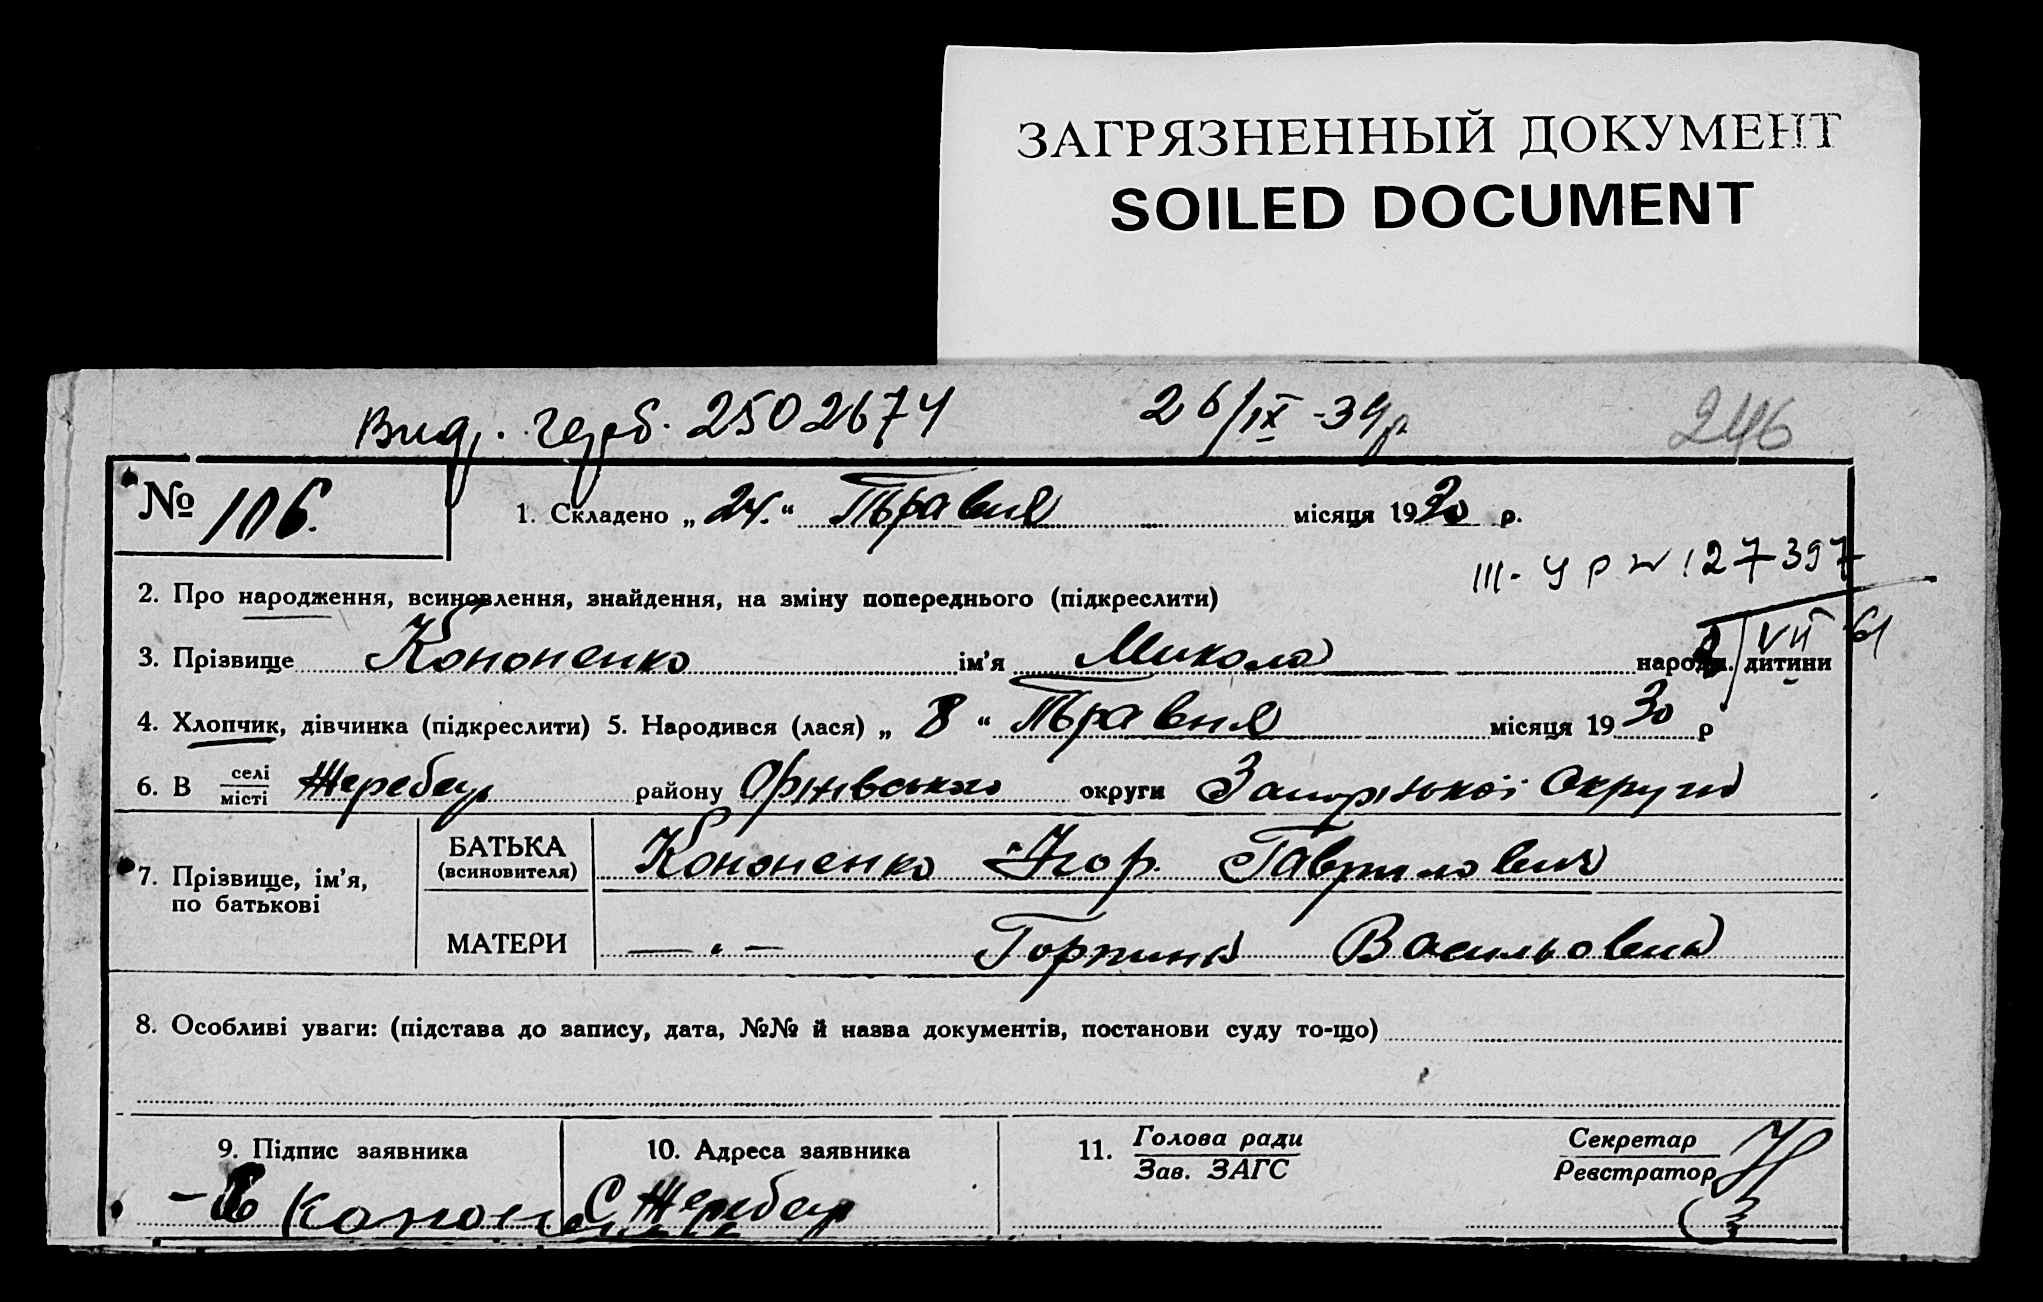 ЗАГРЯЗНЕННЫЙ ДОКУМЕНТ
SOILED DOCUMENT
Вид. герб. 2502674 26/IX-39р 246
№ 106. 1. Складено „24.“ Травня місяця 1930 р.
III-УР № 127397
2. Про народження, всиновлення, знайдення, на зміну попереднього (підкреслити)
VII 61
3. Прізвище Кононенко ім’я Микола народж. дитини
4. Хлопчик, дівчинка (підкреслити) 5. Народився (лася) „8“ Травня місяця 1930 р
6. В селі/місті Жеребец району округи Запорізької Округи
7. Прізвище, ім’я, по батькові
БАТЬКА (всиновителя) Кононенко Ігор. Гаврилович
МАТЕРИ — „ — Горпина Васильовна
8. Особливі уваги: (підстава до запису, дата, №№ й назва документів, постанови суду то-що)
9. Підпис заявника 10. Адреса заявника 11. Голова ради/Зав. ЗАГС Секретар/Реєстратор
Кононенко С Жеребец